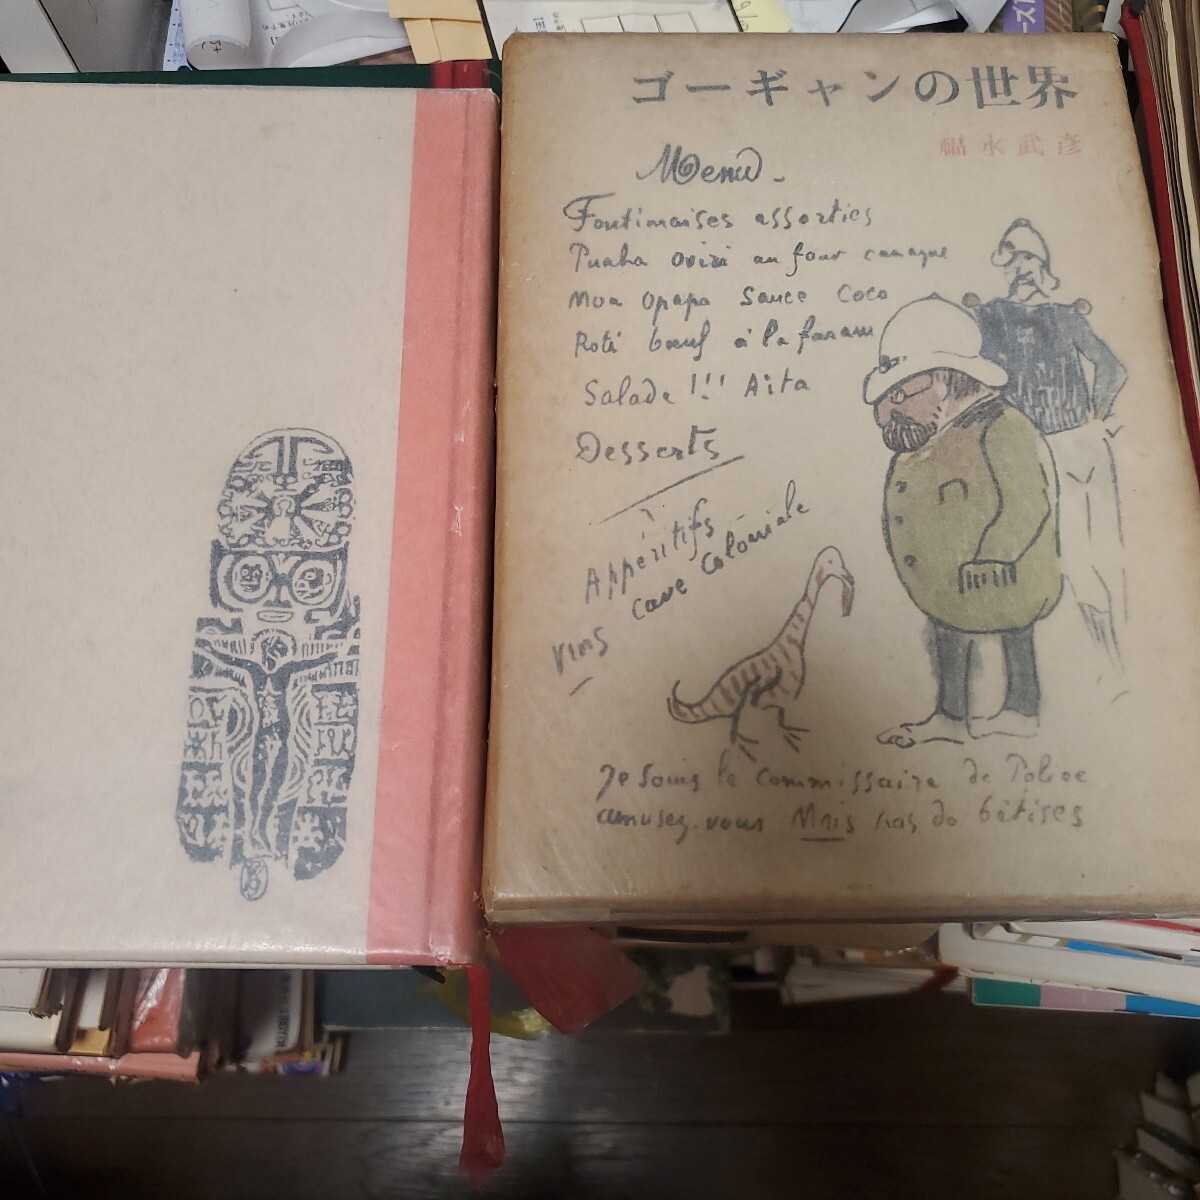 ゴーギャンの世界
福永武彦
Menu
Fontimaises assorties
Puaha oviri au four canaque
Moa Opapa Sauce Coco
Roti bœuf à la faram
Salade !!! Aita
Desserts
Appéritifs
cave coloniale
vins
Je souis le Commissaire de Poloce
amusez-vous Mais pas do bêtises